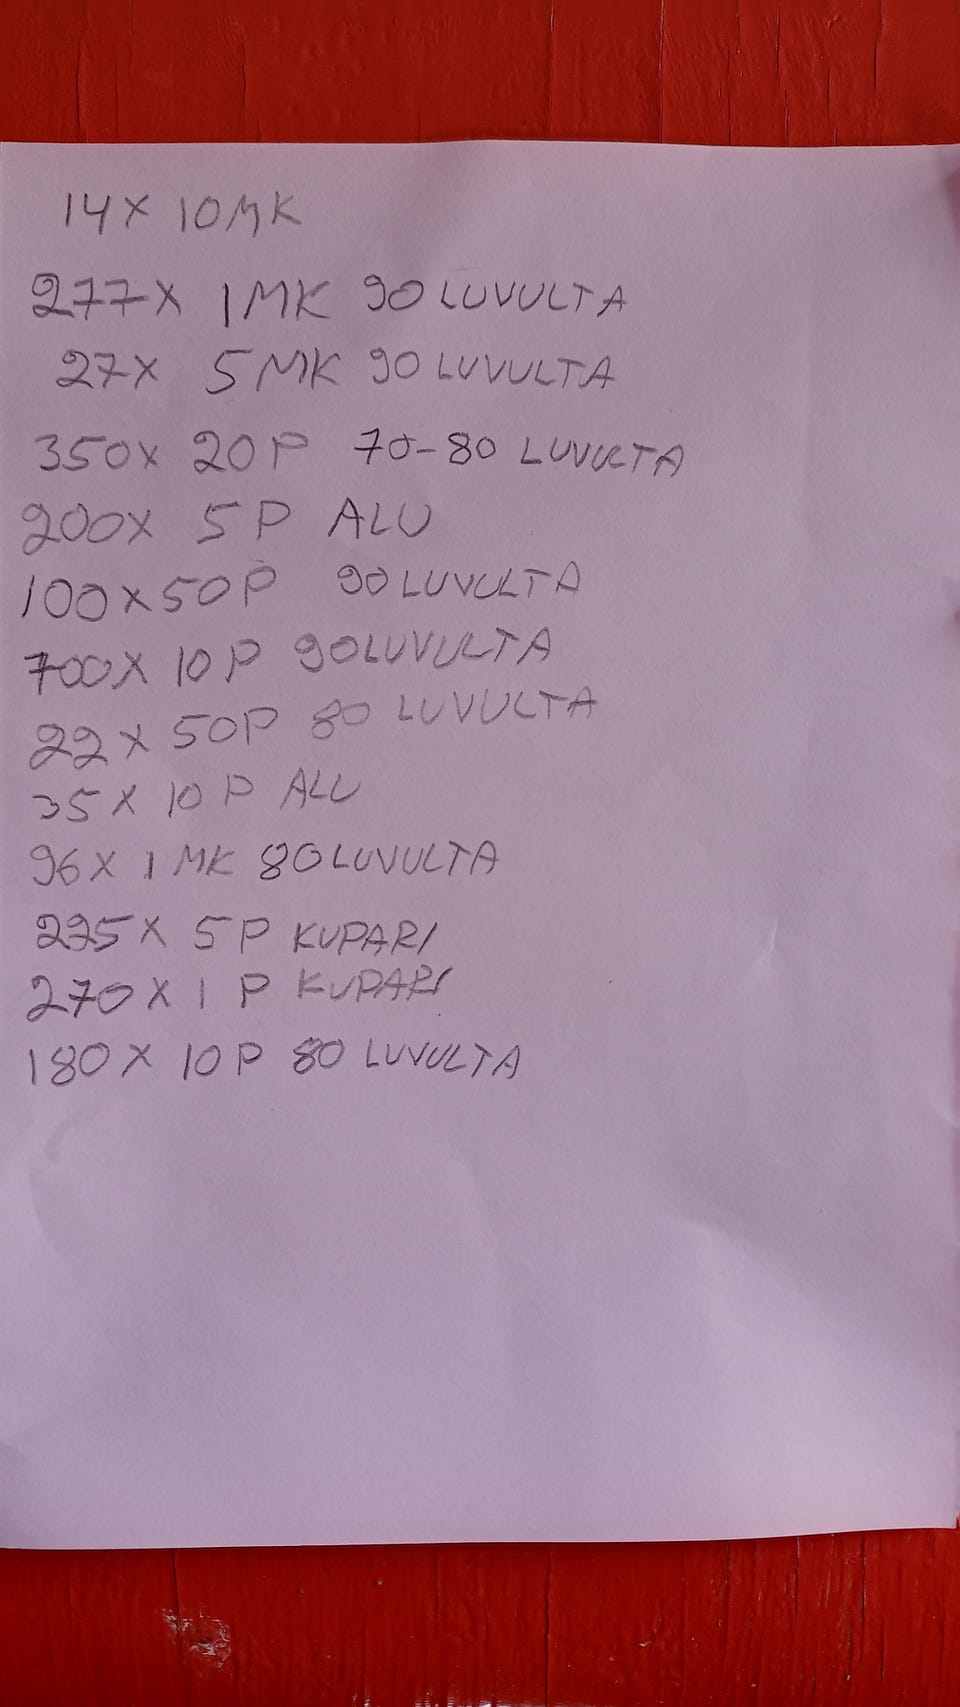 14X 10MK
277X 1MK 90 LUVULTA
27X 5MK 90 LUVULTA
350X 20P 70-80 LUVULTA
200X 5P ALU
100X50P 90 LUVULTA
700X 10P 90LUVULTA
22X 50P 80 LUVULTA
35X 10P ALU
96X 1MK 80LUVULTA
225X 5P KUPARI
270X 1P KUPARI
180X 10P 80 LUVULTA